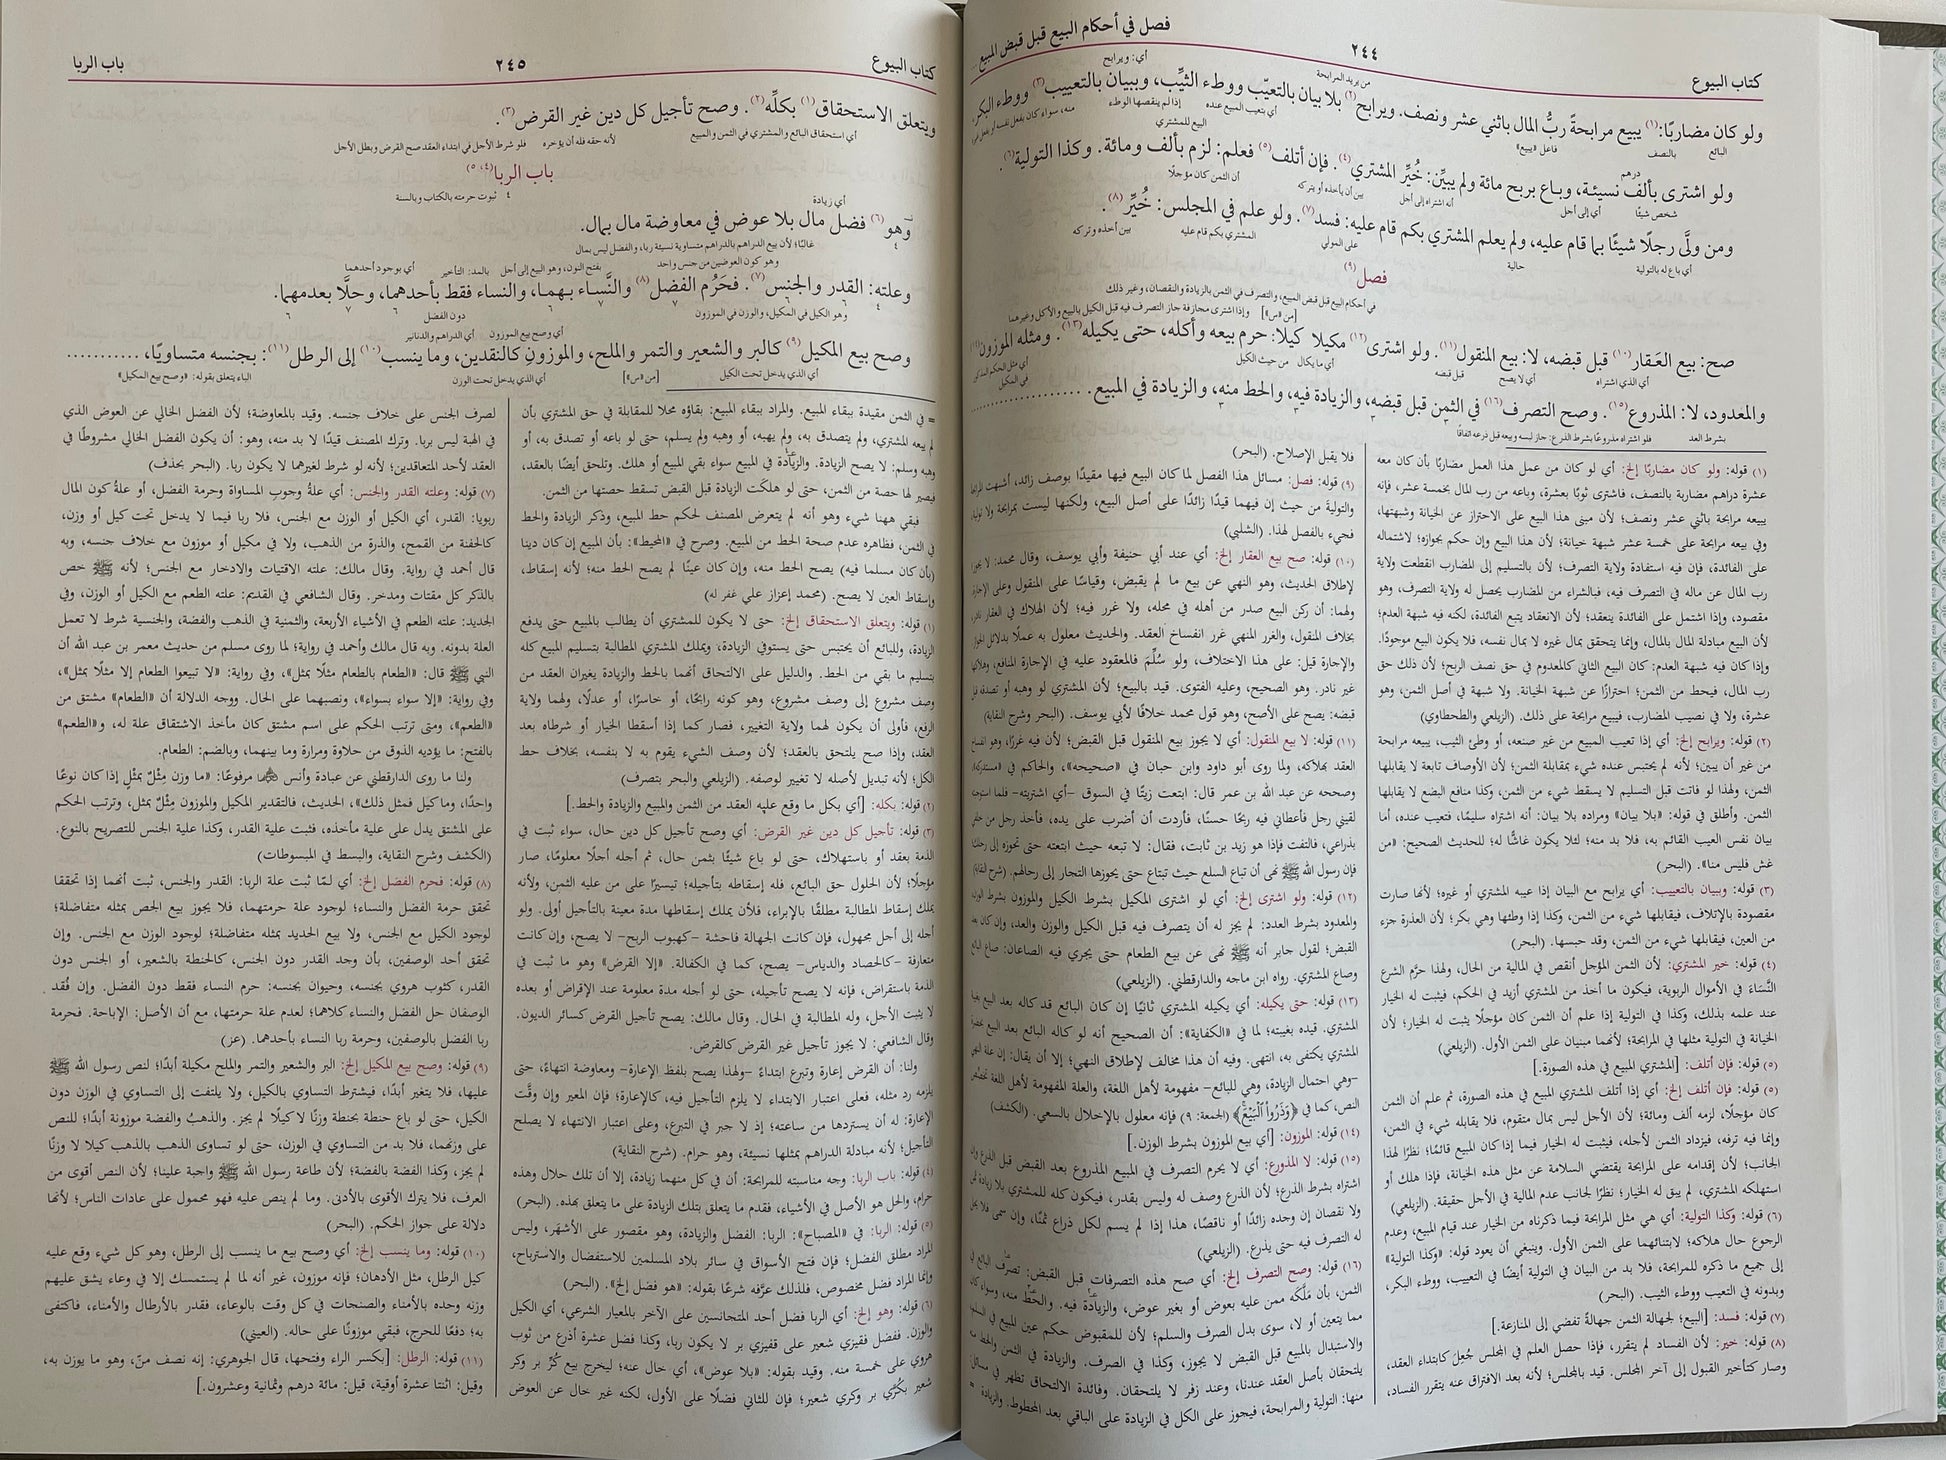 كتاب البيوع
٢٤٤
فصل في أحكام البيع قبل قبض المبيع
ولو كان مضاربًا:(١) يبيع مرابحةً ربُّ المال باثني عشر ونصف. ويرابح(٢) بلا بيان بالتعيّب ووطء الثيِّب، وببيان بالتعييب(٣) ووطء البكر.
ولو اشترى بألف نسيئة، وباع بربح مائة ولم يبيِّن: خُيِّر المشتري(٤). فإن أتلف(٥) فعلم: لزم بألف ومائة. وكذا التولية(٦).
ومن ولَّى رجلًا شيئًا بما قام عليه، ولم يعلم المشتري بكم قام عليه: فسد(٧). ولو علم في المجلس: خُيِّر(٨).
فصل(٩)
في أحكام البيع قبل قبض المبيع، والتصرف في الثمن بالزيادة والنقصان، وغير ذلك
صح: بيع العَقار(١٠) قبل قبضه، لا: بيع المنقول(١١). ولو اشترى(١٢) مكيلا كيلا: حرم بيعه وأكله، حتى يكيله(١٣). ومثله الموزون(١٤)
والمعدود، لا: المذروع(١٥). وصح التصرف(١٦) في الثمن قبل قبضه، والزيادة فيه، والحط منه، والزيادة في المبيع.
(١) قوله: ولو كان مضاربًا إلخ: أي لو كان من عمل هذا العمل مضاربًا بأن كان معه
عشرة دراهم مضاربة بالنصف، فاشترى ثوبًا بعشرة، وباعه من رب المال بخمسة عشر، فإنه
يبيعه مرابحة باثني عشر ونصف؛ لأن مبنى هذا البيع على الاحتراز عن الخيانة وشبهتها،
وفي بيعه مرابحة على خمسة عشر شبهة خيانة؛ لأن هذا البيع وإن حكم بجوازه؛ لاشتماله
على الفائدة، فإن فيه استفادة ولاية التصرف؛ لأن بالتسليم إلى المضارب انقطعت ولاية
رب المال عن ماله في التصرف فيه، فبالشراء من المضارب يحصل له ولاية التصرف، وهو
مقصود، وإذا اشتمل على الفائدة ينعقد؛ لأن الانعقاد يتبع الفائدة، لكنه فيه شبهة العدم؛
لأن البيع مبادلة المال بالمال، وإنما يتحقق بمال غيره لا بمال نفسه، فلا يكون البيع موجودًا.
وإذا كان فيه شبهة العدم: كان البيع الثاني كالمعدوم في حق نصف الربح؛ لأن ذلك حق
رب المال، فيحط من الثمن؛ احترازًا عن شبهة الخيانة. ولا شبهة في أصل الثمن، وهو
عشرة، ولا في نصيب المضارب، فيبيع مرابحة على ذلك. (الزيلعي والطحطاوي)
(٢) قوله: ويرابح إلخ: أي إذا تعيب المبيع من غير صنعه، أو وطئ الثيب، يبيعه مرابحة
من غير أن يبين؛ لأنه لم يحتبس عنده شيء بمقابلة الثمن؛ لأن الأوصاف تابعة لا يقابلها
الثمن، ولهذا لو فاتت قبل التسليم لا يسقط شيء من الثمن، وكذا منافع البضع لا يقابلها
الثمن. وأطلق في قوله: «بلا بيان» ومراده بلا بيان: أنه اشتراه سليمًا، فتعيب عنده، أما
بيان نفس العيب القائم به، فلا بد منه؛ لئلا يكون غاشًّا له؛ للحديث الصحيح: «من
غش فليس منا». (البحر)
(٣) قوله: وببيان بالتعييب: أي يرابح مع البيان إذا عيبه المشتري أو غيره؛ لأنها صارت
مقصودة بالإتلاف، فيقابلها شيء من الثمن، وكذا إذا وطئها وهي بكر؛ لأن العذرة جزء
من العين، فيقابلها شيء من الثمن، وقد حبسها. (البحر)
(٤) قوله: خير المشتري: لأن الثمن المؤجل أنقص في المالية من الحال، ولهذا حرَّم الشرع
النَّسَاء في الأموال الربوية، فيكون ما أخذ من المشتري أزيد في الحكم، فيثبت له الخيار
عند علمه بذلك، وكذا في التولية إذا علم أن الثمن كان مؤجلًا يثبت له الخيار؛ لأن
الخيانة في التولية مثلها في المرابحة؛ لأنهما مبنيان على الثمن الأول. (الزيلعي)
(٥) قوله: فإن أتلف: [المشتري المبيع في هذه الصورة.]
(٥) قوله: فإن أتلف إلخ: أي إذا أتلف المشتري المبيع في هذه الصورة، ثم علم أن الثمن
كان مؤجلًا، لزمه ألف ومائة؛ لأن الأجل ليس بمال متقوم، فلا يقابله شيء في الثمن،
وإنما فيه ترفه، فيزداد الثمن لأجله، فيثبت له الخيار فيما إذا كان المبيع قائمًا؛ نظرًا لهذا
الجانب؛ لأن إقدامه على المرابحة يقتضي السلامة عن مثل هذه الخيانة، فإذا هلك أو
استهلكه المشتري، لم يبق له الخيار؛ نظرًا لجانب عدم المالية في الأجل حقيقة. (الزيلعي)
(٦) قوله: وكذا التولية: أي هي مثل المرابحة فيما ذكرناه من الخيار عند قيام المبيع، وعدم
الرجوع حال هلاكه؛ لابتنائهما على الثمن الأول. وينبغي أن يعود قوله: «وكذا التولية»
إلى جميع ما ذكره للمرابحة، فلا بد من البيان في التولية أيضًا في التعييب، ووطء البكر،
وبدونه في التعيب ووطء الثيب. (البحر)
(٧) قوله: فسد: [البيع؛ لجهالة الثمن جهالةً تفضي إلى المنازعة.]
(٨) قوله: خير: لأن الفساد لم يتقرر، فإذا حصل العلم في المجلس جُعِلَ كابتداء العقد،
وصار كتأخير القبول إلى آخر المجلس. قيد بالمجلس؛ لأنه بعد الافتراق عنه يتقرر الفساد،
فلا يقبل الإصلاح. (البحر)
(٩) قوله: فصل: مسائل هذا الفصل لما كان البيع فيها مقيدًا بوصف زائد، أشبهت
والتولية من حيث إن فيهما قيدًا زائدًا على أصل البيع، ولكنها ليست بمرابحة ولا
فجيء بالفصل لهذا. (الشلبي)
(١٠) قوله: صح بيع العقار إلخ: أي عند أبي حنيفة وأبي يوسف، وقال محمد: لا
لإطلاق الحديث، وهو النهي عن بيع ما لم يقبض، وقياسًا على المنقول وعلى
ولهما: أن ركن البيع صدر من أهله في محله، ولا غرر فيه؛ لأن الهلاك في العقار
بخلاف المنقول، والغرر المنهي غرر انفساخ العقد. والحديث معلول به عملًا بدلائل
والإجارة قيل: على هذا الاختلاف، ولو سُلِّمَ فالمعقود عليه في الإجارة المنافع،
غير نادر. وهو الصحيح، وعليه الفتوى. قيد بالبيع؛ لأن المشتري لو وهبه أو تصدق
قبضه: يصح على الأصح، وهو قول محمد خلافًا لأبي يوسف. (البحر وشرح النقاية)
(١١) قوله: لا بيع المنقول: أي لا يجوز بيع المنقول قبل القبض؛ لأن فيه غررًا، وهو
العقد بهلاكه، ولما روى أبو داود وابن حبان في «صحيحه»، والحاكم في
وصححه عن عبد الله بن عمر قال: ابتعت زيتًا في السوق –أي اشتريته– فلما
لقيني رجل فأعطاني فيه ربحًا حسنًا، فأردت أن أضرب على يده، فأخذ رجل من
بذراعي، فالتفت فإذا هو زيد بن ثابت، فقال: لا تبعه حيث ابتعته حتى تحوزه إلى
فإن رسول الله ﷺ نهى أن تباع السلع حيث تبتاع حتى يحوزها التجار إلى رحالهم.
(١٢) قوله: ولو اشترى إلخ: أي لو اشترى المكيل بشرط الكيل والموزون بشرط
والمعدود بشرط العدد: لم يجز له أن يتصرف فيه قبل الكيل والوزن والعد، وإن كان
القبض؛ لقول جابر أنه ﷺ نهى عن بيع الطعام حتى يجري فيه الصاعان: صاع
وصاع المشتري. رواه ابن ماجه والدارقطني. (الزيلعي)
(١٣) قوله: حتى يكيله: أي يكيله المشتري ثانيًا إن كان البائع قد كاله بعد البيع
المشتري. قيده بغيبته؛ لما في «الكفاية»: أن الصحيح أنه لو كاله البائع بعد البيع
المشتري يكتفى به، انتهى. وفيه أن هذا مخالف لإطلاق النهي؛ إلا أن يقال: إن علة
–وهي احتمال الزيادة، وهي للبائع– مفهومة لأهل اللغة، والعلة المفهومة لأهل اللغة
النص، كما في ﴿وَذَرُواْ ٱلْبَيْعَ﴾ (الجمعة: ٩) فإنه معلول بالإخلال بالسعي. (الكشف)
(١٤) قوله: الموزون: [أي بيع الموزون بشرط الوزن.]
(١٥) قوله: لا المذروع: أي لا يحرم التصرف في المبيع المذروع بعد القبض قبل الذرع
اشتراه بشرط الذرع؛ لأن الذرع وصف له وليس بقدر، فيكون كله للمشتري بلا زيادة
ولا نقصان إن وجده زائدًا أو ناقصًا، هذا إذا لم يسم لكل ذراع ثمنًا، وإن سمى
له التصرف فيه حتى يذرع. (الزيلعي)
(١٦) قوله: وصح التصرف إلخ: أي صح هذه التصرفات قبل القبض: تصرف البائع في
الثمن، بأن ملَّكه ممن عليه بعوض أو بغير عوض، والزيادة فيه. والحط منه، وسواء
مما يتعين أو لا، سوى بدل الصرف والسلم؛ لأن للمقبوض حكم عين المبيع في
والاستبدال بالمبيع قبل القبض لا يجوز، وكذا في الصرف. والزيادة في الثمن والحط
يلتحقان بأصل العقد عندنا، وعند زفر لا يلتحقان. وفائدة الالتحاق تظهر في
منها: التولية والمرابحة، فيجوز على الكل في الزيادة على الباقي بعد المحطوط.
كتاب البيوع
٢٤٥
باب الربا
ويتعلق الاستحقاق(١) بكلِّه(٢). وصح تأجيل كل دين غير القرض(٣).
أي استحقاق البائع والمشتري في الثمن والمبيع
لأنه حقه فله أن يؤخره
فلو شرط الأجل في ابتداء العقد صح القرض وبطل الأجل
باب الربا(٤، ٥)
ثبوت حرمته بالكتاب والسنة
أي زيادة
وهو(٦) فضل مال بلا عوض في معاوضة مال بمال.
غالبًا؛ لأن بيع الدراهم بالدراهم متساوية نسيئة ربا، والفضل ليس بمال
وهو كون العوضين من جنس واحد
بفتح النون، وهو البيع إلى أجل
بالمد: التأخير
أي بوجود أحدهما
وعلته: القدر والجنس(٧). فحَرُم الفضل(٨) والنَّساء بهما، والنساء فقط بأحدهما، وحلَّا بعدمهما.
وهو الكيل في المكيل، والوزن في الموزون
دون الفضل
أي وصح بيع الموزون
أي الدراهم والدنانير
وصح بيع المكيل(٩) كالبر والشعير والتمر والملح، والموزونِ كالنقدين، وما ينسب(١٠) إلى الرطل(١١): بجنسه متساويًا، ...........
أي الذي يدخل تحت الكيل
[من «س»]
أي الذي يدخل تحت الوزن
الباء يتعلق بقوله: «وصح بيع المكيل»
= في الثمن مقيدة ببقاء المبيع. والمراد ببقاء المبيع: بقاؤه محلا للمقابلة في حق المشتري بأن
لم يبعه المشتري، ولم يتصدق به، ولم يهبه، أو وهبه ولم يسلم، حتى لو باعه أو تصدق به، أو
وهبه وسلم: لا يصح الزيادة. والزيادة في المبيع سواء بقي المبيع أو هلك. وتلحق أيضًا بالعقد،
فيصير لها حصة من الثمن، حتى لو هلكَت الزيادة قبل القبض تسقط حصتها من الثمن.
فبقي ههنا شيء وهو أنه لم يتعرض المصنف لحكم حط المبيع، وذكر الزيادة والحط
في الثمن، فظاهره عدم صحة الحط من المبيع. وصرح في «المحيط»: بأن المبيع إن كان دينا
(بأن كان مسلما فيه) يصح الحط منه، وإن كان عينًا لم يصح الحط منه؛ لأنه إسقاط،
وإسقاط العين لا يصح. (محمد إعزاز علي غفر له)
(١) قوله: ويتعلق الاستحقاق إلخ: حتى لا يكون للمشتري أن يطالب بالمبيع حتى يدفع
الزيادة، وللبائع أن يحتبس حتى يستوفي الزيادة، ويملك المشتري المطالبة بتسليم المبيع كله
بتسليم ما بقي من الحط. والدليل على الالتحاق أنهما بالحط والزيادة يغيران العقد من
وصف مشروع إلى وصف مشروع، وهو كونه رابحًا، أو خاسرًا، أو عدلًا، ولهما ولاية
الرفع، فأولى أن يكون لهما ولاية التغيير، فصار كما إذا أسقطا الخيار أو شرطاه بعد
العقد، وإذا صح يلتحق بالعقد؛ لأن وصف الشيء يقوم به لا بنفسه، بخلاف حط
الكل؛ لأنه تبديل لأصله لا تغيير لوصفه. (الزيلعي والبحر بتصرف)
(٢) قوله: بكله: [أي بكل ما وقع عليه العقد من الثمن والمبيع والزيادة والحط.]
(٣) قوله: تأجيل كل دين غير القرض: أي وصح تأجيل كل دين حال، سواء ثبت في
الذمة بعقد أو باستهلاك، حتى لو باع شيئًا بثمن حال، ثم أجله أجلًا معلومًا، صار
مؤجلًا؛ لأن الحلول حق البائع، فله إسقاطه بتأجيله؛ تيسيرًا على من عليه الثمن، ولأنه
يملك إسقاط المطالبة مطلقًا بالإبراء، فلأن يملك إسقاطها مدة معينة بالتأجيل أولى. ولو
أجله إلى أجل مجهول، فإن كانت الجهالة فاحشة –كهبوب الريح– لا يصح، وإن كانت
متعارفة –كالحصاد والدياس– يصح، كما في الكفالة. «إلا القرض» وهو ما ثبت في
الذمة باستقراض، فإنه لا يصح تأجيله، حتى لو أجله مدة معلومة عند الإقراض أو بعده
لا يثبت الأجل، وله المطالبة في الحال. وقال مالك: يصح تأجيل القرض كسائر الديون.
وقال الشافعي: لا يجوز تأجيل غير القرض كالقرض.
ولنا: أن القرض إعارة وتبرع ابتداءً –ولهذا يصح بلفظ الإعارة– ومعاوضة انتهاءً، حتى
يلزمه رد مثله، فعلى اعتبار الابتداء لا يلزم التأجيل فيه، كالإعارة؛ فإن المعير وإن وقَّت
الإعارة: له أن يستردها من ساعته؛ إذ لا جبر في التبرع، وعلى اعتبار الانتهاء لا يصلح
التأجيل؛ لأنه مبادلة الدراهم بمثلها نسيئة، وهو حرام. (شرح النقاية)
(٤) قوله: باب الربا: وجه مناسبته للمرابحة: أن في كل منهما زيادة، إلا أن تلك حلال وهذه
حرام، والحل هو الأصل في الأشياء، فقدم ما يتعلق بتلك الزيادة على ما يتعلق بهذه. (البحر)
(٥) قوله: الربا: في «المصباح»: الربا: الفضل والزيادة، وهو مقصور على الأشهر، وليس
المراد مطلق الفضل؛ فإن فتح الأسواق في سائر بلاد المسلمين للاستفضال والاسترباح،
وإنما المراد فضل مخصوص، فلذلك عرَّفه شرعًا بقوله: «هو فضل إلخ». (البحر)
(٦) قوله: وهو إلخ: أي الربا فضل أحد المتجانسين على الآخر بالمعيار الشرعي، أي الكيل
والوزن. ففضل قفيزي شعير على قفيزي بر لا يكون ربا، وكذا فضل عشرة أذرع من ثوب
هروي على خمسة منه. وقيد بقوله: «بلا عوض»، أي خال عنه؛ ليخرج بيع كُرِّ بر وكر
شعير بكُرَّي بر وكري شعير؛ فإن للثاني فضلًا على الأول، لكنه غير خال عن العوض
لصرف الجنس على خلاف جنسه. وقيد بالمعاوضة؛ لأن الفضل الخالي عن العوض الذي
في الهبة ليس بربا. وترك المصنف قيدًا لا بد منه، وهو: أن يكون الفضل الخالي مشروطًا في
العقد لأحد المتعاقدين؛ لأنه لو شرط لغيرهما لا يكون ربا. (البحر بحذف)
(٧) قوله: وعلته القدر والجنس: أي علةُ وجوبِ المساواة وحرمة الفضل، أو علةُ كون المال
ربويا: القدر، أي الكيل أو الوزن مع الجنس، فلا ربا فيما لا يدخل تحت كيل أو وزن،
كالحفنة من القمح، والذرة من الذهب، ولا في مكيل أو موزون مع خلاف جنسه، وبه
قال أحمد في رواية. وقال مالك: علته الاقتيات والادخار مع الجنس؛ لأنه ﷺ خص
بالذكر كل مقتات ومدخر. وقال الشافعي في القديم: علته الطعم مع الكيل أو الوزن، وفي
الجديد: علته الطعم في الأشياء الأربعة، والثمنية في الذهب والفضة، والجنسية شرط لا تعمل
العلة بدونه. وبه قال مالك وأحمد في رواية؛ لما روى مسلم من حديث معمر بن عبد الله أن
النبي ﷺ قال: «الطعام بالطعام مثلًا بمثل»، وفي رواية: «لا تبيعوا الطعام إلا مثلًا بمثل»،
وفي رواية: «إلا سواء بسواء»، ونصبهما على الحال. ووجه الدلالة أن «الطعام» مشتق من
«الطعم»، ومتى ترتب الحكم على اسم مشتق كان مأخذ الاشتقاق علة له، و«الطعم»
بالفتح: ما يؤديه الذوق من حلاوة ومرارة وما بينهما، وبالضم: الطعام.
ولنا ما روى الدارقطني عن عبادة وأنس ﷺ مرفوعًا: «ما وزن مِثْلٌ بمثْلٍ إذا كان نوعًا
واحدًا، وما كيل فمثل ذلك»، الحديث، فالتقدير المكيل والموزون مِثْلٌ بمثل، وترتب الحكم
على المشتق يدل على علية مأخذه، فثبت علية القدر، وكذا علية الجنس للتصريح بالنوع.
(الكشف وشرح النقاية، والبسط في المبسوطات)
(٨) قوله: فحرم الفضل إلخ: أي لـمّا ثبت علة الربا: القدر والجنس، ثبت أنهما إذا تحققا
تحقق حرمة الفضل والنساء؛ لوجود علة حرمتهما، فلا يجوز بيع الجص بمثله متفاضلة؛
لوجود الكيل مع الجنس، ولا بيع الحديد بمثله متفاضلة؛ لوجود الوزن مع الجنس. وإن
تحقق أحد الوصفين، بأن وجد القدر دون الجنس، كالحنطة بالشعير، أو الجنس دون
القدر، كثوب هروي بجنسه، وحيوان بجنسه: حرم النساء فقط دون الفضل. وإن فُقد
الوصفان حل الفضل والنساء كلاهما؛ لعدم علة حرمتها، مع أن الأصل: الإباحة. فحرمة
ربا الفضل بالوصفين، وحرمة ربا النساء بأحدهما. (عز)
(٩) قوله: وصح بيع المكيل إلخ: البر والشعير والتمر والملح مكيلة أبدًا؛ لنص رسول الله ﷺ
عليها، فلا يتغير أبدًا، فيشترط التساوي بالكيل، ولا يلتفت إلى التساوي في الوزن دون
الكيل، حتى لو باع حنطة بحنطة وزنًا لا كيلًا لم يجز. والذهبُ والفضة موزونة أبدًا؛ للنص
على وزنهما، فلا بد من التساوي في الوزن، حتى لو تساوى الذهب بالذهب كيلا لا وزنًا
لم يجز، وكذا الفضة بالفضة؛ لأن طاعة رسول الله ﷺ واجبة علينا؛ لأن النص أقوى من
العرف، فلا يترك الأقوى بالأدنى. وما لم ينص عليه فهو محمول على عادات الناس؛ لأنها
دلالة على جواز الحكم. (البحر)
(١٠) قوله: وما ينسب إلخ: أي وصح بيع ما ينسب إلى الرطل، وهو كل شيء وقع عليه
كيل الرطل، مثل الأدهان؛ فإنه موزون، غير أنه لما لم يستمسك إلا في وعاء يشق عليهم
وزنه وحده بالأمناء والصنجات في كل وقت بالوعاء، فقدر بالأرطال والأمناء، فاكتفى
به؛ دفعًا للحرج، فبقي موزونًا على حاله. (العيني)
(١١) قوله: الرطل: [بكسر الراء وفتحها، قال الجوهري: إنه نصف منّ، وهو ما يوزن به،
وقيل: اثنتا عشرة أوقية، قيل: مائة درهم وثمانية وعشرون.]